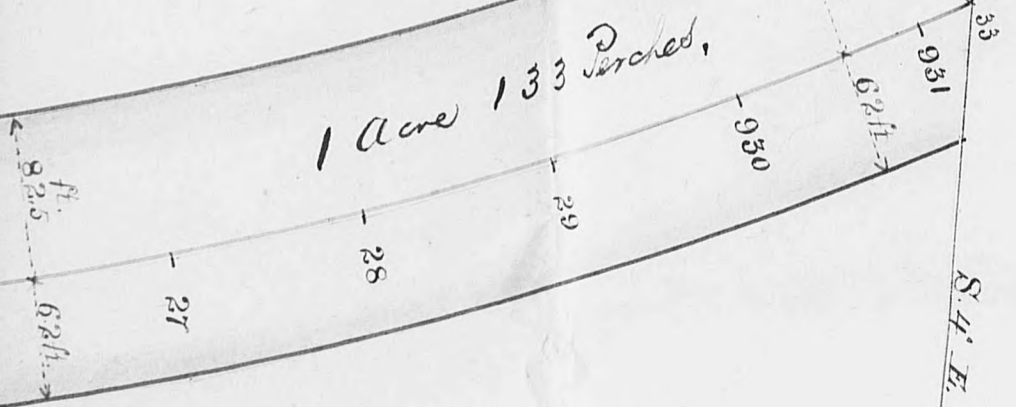 1 Acre 133 Perches.
ft.
82.5
62 ft.
27
28
29
930
931
62 ft.
33
S. 4° E.